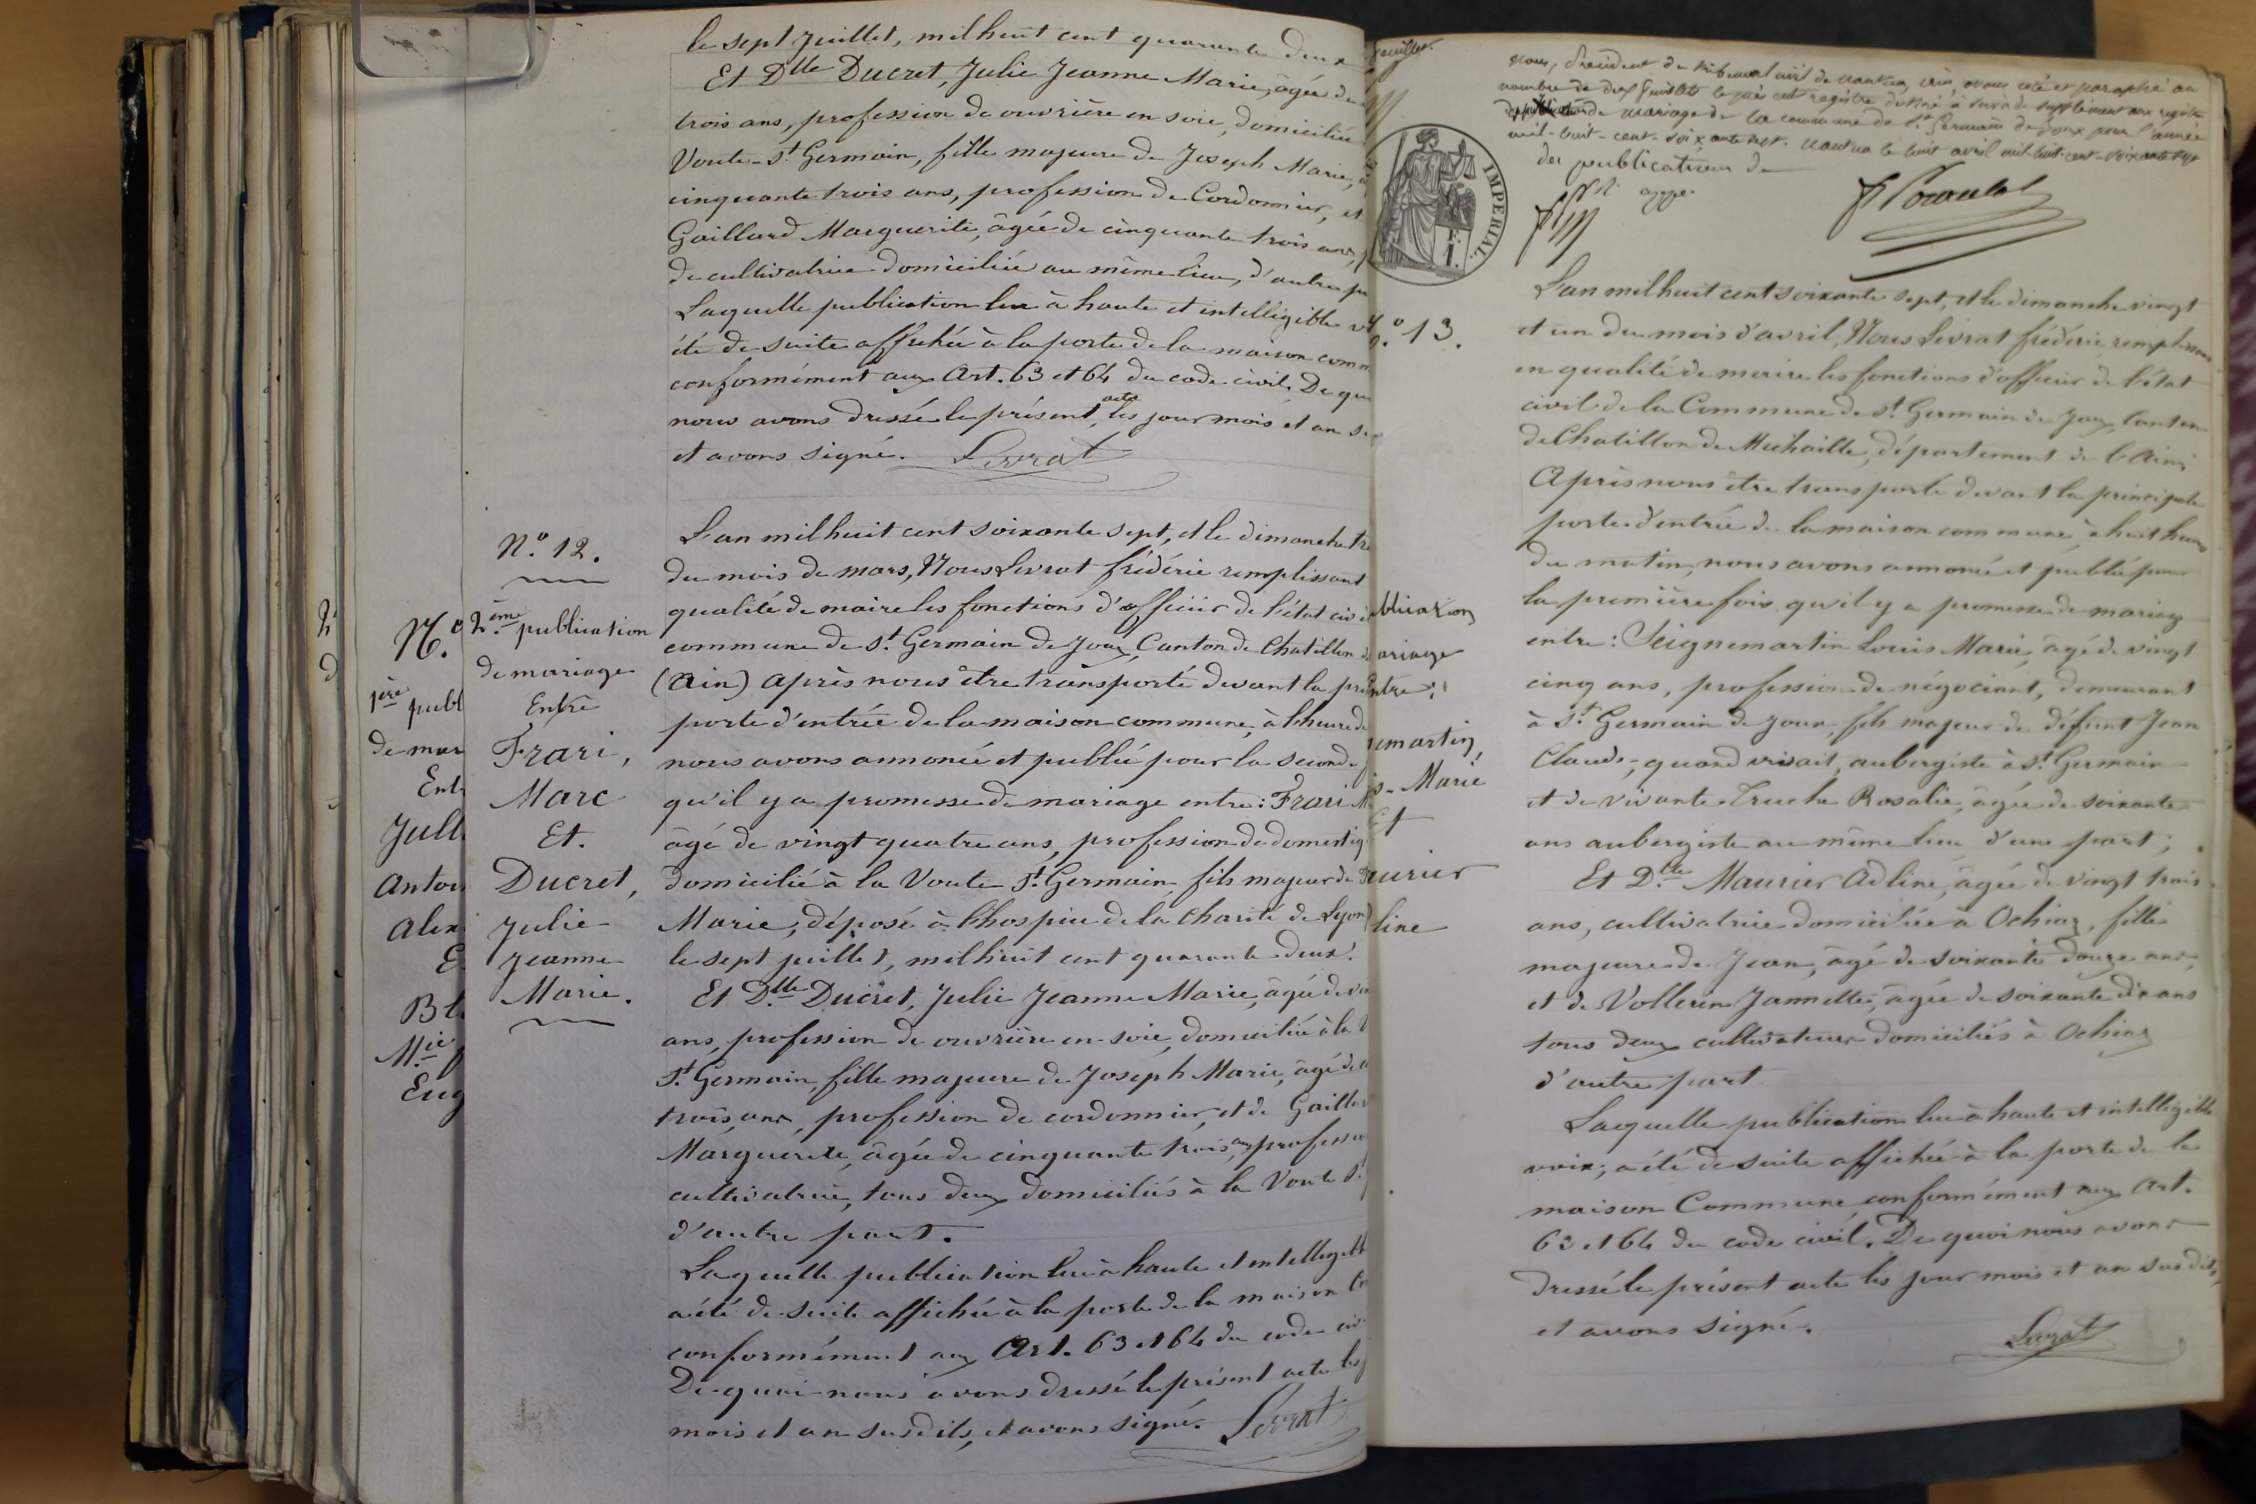 le sept juillet, mil huit cent quarante deux
Et Dlle Ducret, Julie Jeanne Marie, âgée de
trois ans, profession de ouvrière en soie, domiciliée
Voute-St Germain, fille majeure de Joseph Marie,
cinquante trois ans, profession de Cordonnier, et
Gaillard Marguerite, âgée de cinquante trois ans,
de cultivatrice domiciliée au même lieu, d'autre
Laquelle publication lue à haute et intelligible
été de suite affichée à la porte de la maison comm
conformément aux Art. 63 et 64 du code civil. De qu
nous avons dressé le présent acte les jour mois et an
et avons signé. Levrat
N.o 12.
2ème publication
de mariage
Entre
Frari,
Marc
Et.
Ducret,
Julie
Jeanne
Marie.
L'an mil huit cent soixante sept, et le dimanche
du mois de mars, Nous Levrat frédéric remplissant
qualité de maire les fonctions d'officier de l'état civ
commune de St Germain de Joux, Canton de Chatillon
(Ain) après nous être transporté devant la pr
porte d'entrée de la maison commune, à l'heure de
nous avons annoncé et publié pour la seconde
qu'il y a promesse de mariage entre: Frari
âgé de vingt quatre ans, profession de domestiq
domicilié à la Voute St Germain, fils majeur de
Marie, déposé à l'hospice de la Charité de Lyon
le sept juillet, mil huit cent quarante deux.
Et Dlle Ducret, Julie Jeanne Marie, âgée de
ans, profession de ouvrière en soie, domiciliée à la
St Germain, fille majeure de Joseph Marie, âgé de
trois ans, profession de cordonnier, et de Gaillar
Marguerite, âgée de cinquante trois ans, profess
cultivatrice, tous deux domiciliés à la Voute
d'autre part.
Laquelle publication lue à haute et intelligibl
a été de suite affichée à la porte de la maison
conformément aux Art. 63 et 64 du code
De quoi nous avons dressé le présent acte les
mois et an susdits, et avons signé. Levrat
N.o
1ère publ
de mar
Ent
Jull
Anton
Alex
E
Mie
Eug
Nous, Président du tribunal civil de Nantua, avons coté et paraphé au
nombre de deux feuillets le présent registre destiné à servir de supplément aux registre
de mariage de la commune de St Germain de Joux pour l'année
mil-huit-cent-soixante sept. Nantua le huit avril mil-huit-cent-soixante sept
des publications de
IMPERIAL.
1 F.
o. 13.
blication
ariage
ntre:
emartin,
Marie
Et
aurier
line
L'an mil huit cent soixante sept, et le dimanche vingt
et un du mois d'avril, Nous Levrat frédéric remplissant
en qualité de maire les fonctions d'officier de l'état
civil de la Commune de St Germain de Joux, Canton
de Chatillon de Michaille, département de l'Ain,
Après nous être transporté devant la principale
porte d'entrée de la maison commune, à huit heures
du matin, nous avons annoncé et publié pour
la première fois qu'il y a promesse de mariage
entre: Seignemartin Louis Marie, âgé de vingt
cinq ans, profession de négociant, demeurant
à St Germain de Joux, fils majeur de défunt Jean
Claude, quand vivait, aubergiste à St Germain
et de vivante Truche Rosalie, âgée de soixante
ans aubergiste au même lieu d'une part;
Et Dlle Maurier Adline, âgée de vingt trois
ans, cultivatrice domiciliée à Ochiaz, fille
majeure de Jean, âgé de soixante douze ans,
et de Vollerin Jannette, âgée de soixante dix ans
tous deux cultivateurs domiciliés à Ochiaz
d'autre part.
Laquelle publication lue à haute et intelligible
voix, a été de suite affichée à la porte de la
maison Commune conformément aux Art.
63 et 64 du code civil. De quoi nous avons
dressé le présent acte les jour mois et an susdits,
et avons signé.
Levrat